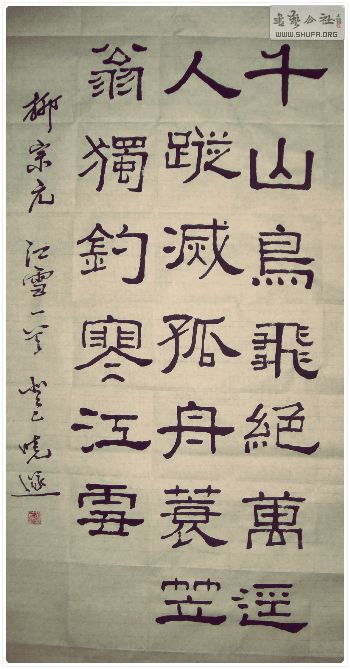 书艺公社
WWW.SHUFA.ORG
千山鳥飛絕萬逕
人蹤滅孤舟蓑笠
翁獨釣寒江雪
柳宗元 江雪一首 癸巳 曉